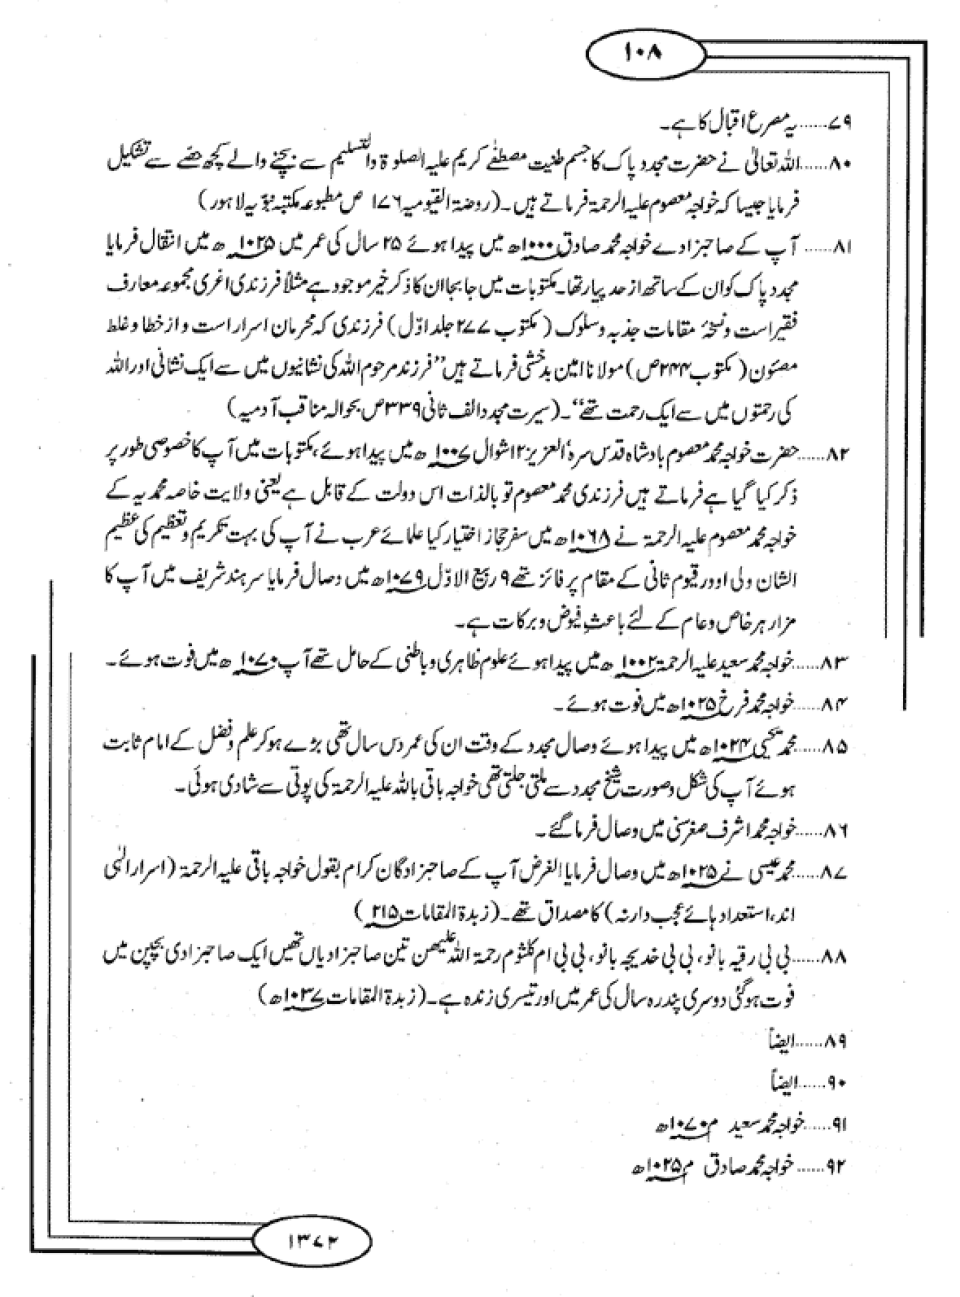 ۱۰۸
۷۹......یہ مصرع اقبال کا ہے۔
۸۰......اللہ تعالیٰ نے حضرت مجدد پاک کا جسم طنیت مصطفےٰ کریم علیہ الصلوۃ والتسلیم سے بچنے والے کچھ حصے سے تشکیل
فرمایا جیسا کہ خواجہ معصوم علیہ الرحمۃ فرماتے ہیں۔ (روضۃ القیومیہ ۱۷۶ ص مطبوعہ مکتبہ نبویہ لاہور)
۸۱...... آپ کے صاحبزادے خواجہ محمد صادق ۱۰۰۰ھ میں پیدا ہوئے ۲۵ سال کی عمر میں ۱۰۲۵ھ میں انتقال فرمایا
مجدد پاک کو ان کے ساتھ از حد پیار تھا۔ مکتوبات میں جا بجا ان کا ذکر خیر موجود ہے مثلاً فرزندی اغری مجموعہ معارف
فقیر است ونسخۂ مقامات جذبہ وسلوک (مکتوب ۲۷۷ جلد اوّل) فرزندی کہ محرمان اسرار است و از خطا و غلط
مصئون (مکتوب ۲۴۴ص) مولانا امین بدخشی فرماتے ہیں ”فرزند مرحوم اللہ کی نشانیوں میں سے ایک نشانی اور اللہ
کی رحمتوں میں سے ایک رحمت تھے“۔ (سیرت مجدد الف ثانی ۳۳۹ص بحوالہ مناقب آدمیہ)
۸۲......حضرت خواجہ محمد معصوم بادشاہ قدس سرہٗ العزیز ۱۲شوال ۱۰۰۷ھ میں پیدا ہوئے، مکتوبات میں آپ کا خصوصی طور پر
ذکر کیا گیا ہے فرماتے ہیں فرزندی محمد معصوم تو بالذات اس دولت کے قابل ہے یعنی ولایت خاصہ محمدیہ کے
خواجہ محمد معصوم علیہ الرحمۃ نے ۱۰۶۸ھ میں سفر حجاز اختیار کیا علمائے عرب نے آپ کی بہت تکریم وتعظیم کی عظیم
الشان ولی اوور قیوم ثانی کے مقام پر فائز تھے ۹ ربیع الاوّل ۱۰۷۹ھ میں وصال فرمایا سرہند شریف میں آپ کا
مزار ہر خاص وعام کے لئے باعثِ فیوض وبرکات ہے۔
۸۳......خواجہ محمد سعید علیہ الرحمۃ ۱۰۰۲ھ میں پیدا ہوئے علوم ظاہری وباطنی کے حامل تھے آپ ۱۰۷۰ھ میں فوت ہوئے۔
۸۴......خواجہ محمد فرخ ۱۰۲۵ھ میں فوت ہوئے۔
۸۵......محمد یحییٰ ۱۰۲۴ھ میں پیدا ہوئے وصال مجدد کے وقت ان کی عمر دس سال تھی بڑے ہو کر علم وفضل کے امام ثابت
ہوئے آپ کی شکل وصورت شیخ مجدد سے ملتی جلتی تھی خواجہ باقی باللہ علیہ الرحمۃ کی پوتی سے شادی ہوئی۔
۸۶......خواجہ محمد اشرف صغرسنی میں وصال فرما گئے۔
۸۷......محمد عیسیٰ نے ۱۰۲۵ھ میں وصال فرمایا الغرض آپ کے صاحبزادگان کرام بقول خواجہ باقی علیہ الرحمۃ (اسرار الٰہی
اند، استعداد ہائے عجب دارند) کا مصداق تھے۔ (زبدۃ المقامات ۲۱۵)
۸۸......بی بی رقیہ بانو، بی بی خدیجہ بانو، بی بی ام کلثوم رحمۃ اللہ علیھن تین صاحبزادیاں تھیں ایک صاحبزادی بچپن میں
فوت ہوگئی دوسری پندرہ سال کی عمر میں اور تیسری زندہ ہے۔ (زبدۃ المقامات ۱۰۳۷ھ)
۸۹......ایضاً
۹۰......ایضاً
۹۱......خواجہ محمد سعید م ۱۰۷۰ھ
۹۲......خواجہ محمد صادق م ۱۰۲۵ھ
۱۳۷۲